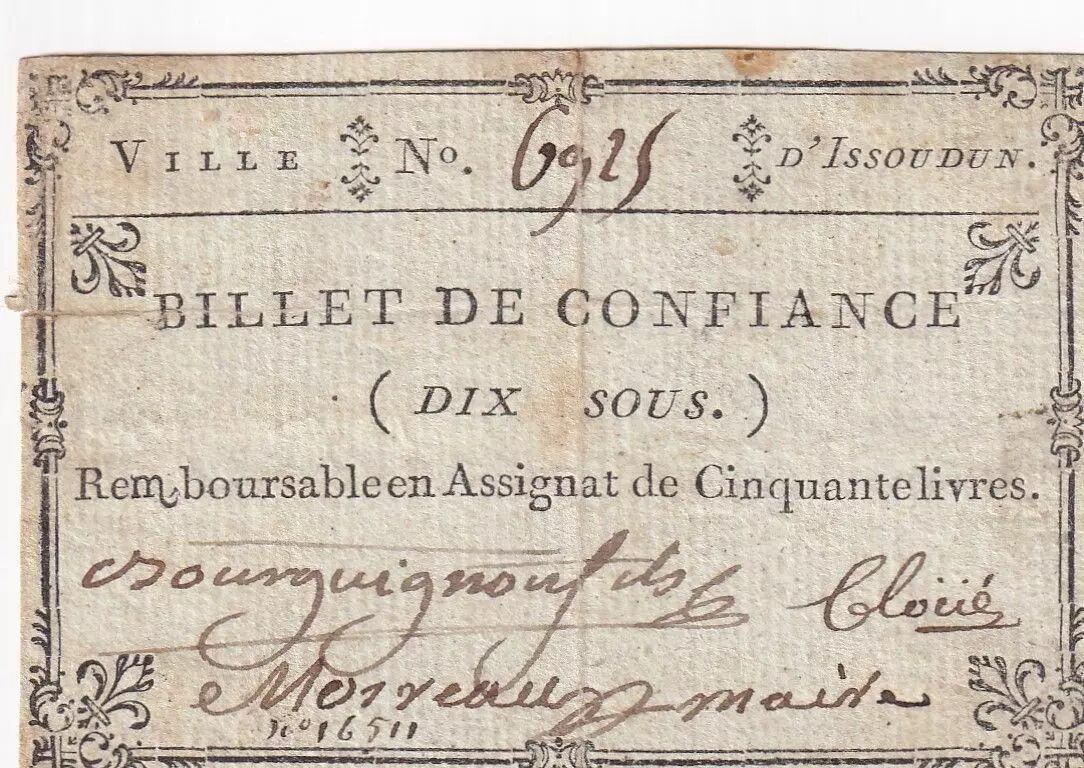 VILLE No. 6925 D'ISSOUDUN.
BILLET DE CONFIANCE
( DIX SOUS. )
Remboursable en Assignat de Cinquante livres.
Bourguignon fils Cloüé
Morreau maire
no 16511